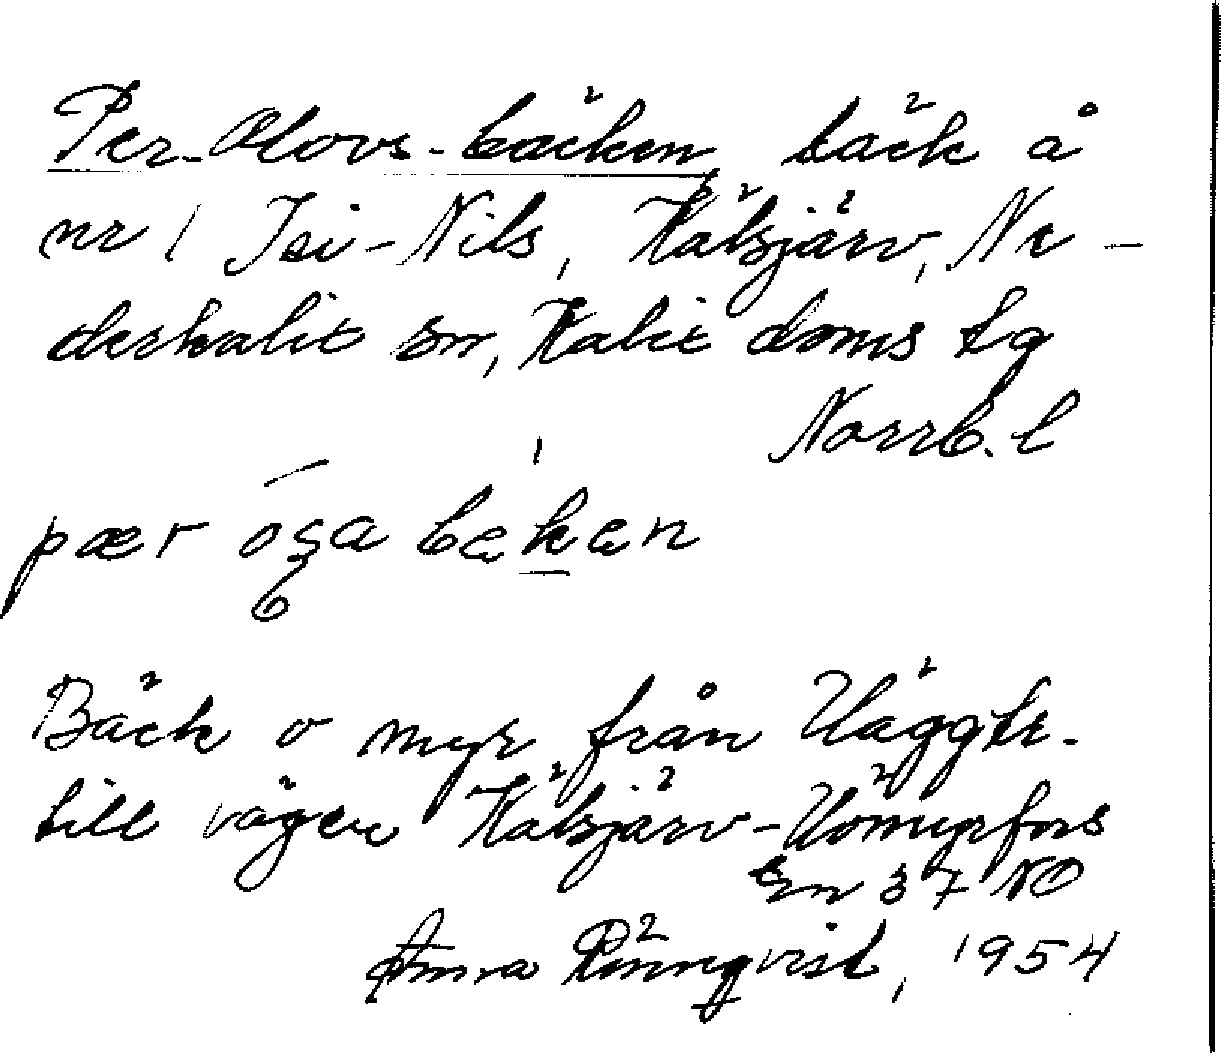 Per-Olovs-bäcken, bäck å
nr 1 Isi-Nils, Kälsjärv, Ne-
derkalix sn, Kalix doms tg
Norrb. l
pær
Bäck o myr från Häggtr.
till vägen Kälsjärv-Hömyrfors
En 37 NO
Anna Rönnqvist, 1954